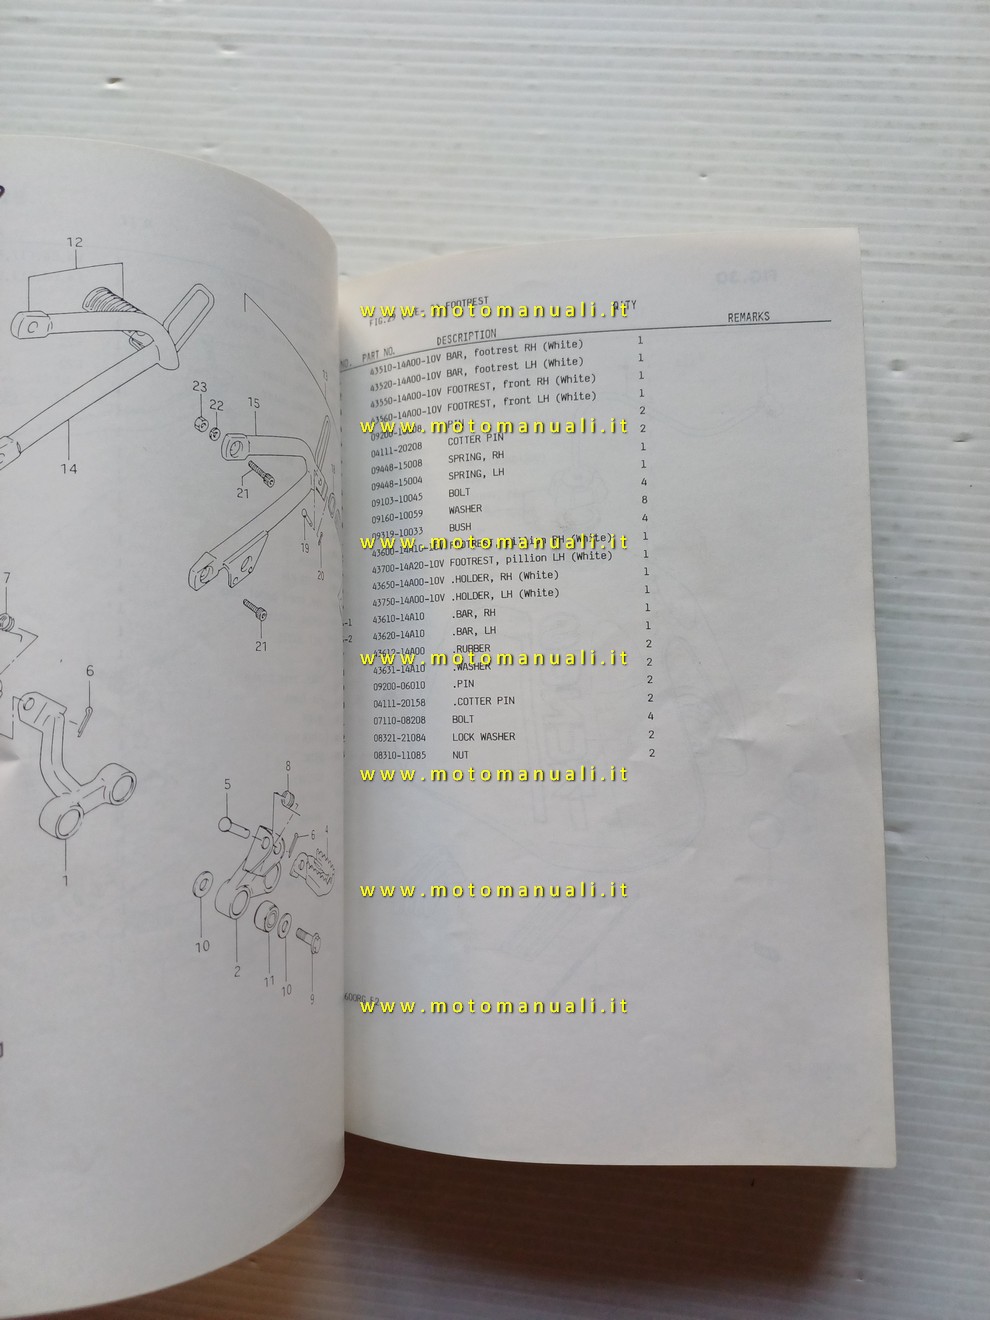 12
14
23
22
15
21
19
20
21
7
6
1
5
8
6
4
10
2
11
10
9
FIG.29 FOOTREST
NO. PART NO. DESCRIPTION Q'TY REMARKS
43510-14A00-10V BAR, footrest RH (White) 1
43520-14A00-10V BAR, footrest LH (White) 1
43550-14A00-10V FOOTREST, front RH (White) 1
43560-14A00-10V FOOTREST, front LH (White) 1
PIN 2
04111-20208 COTTER PIN 2
09448-15008 SPRING, RH 1
09448-15004 SPRING, LH 1
09103-10045 BOLT 4
09160-10059 WASHER 8
09319-10033 BUSH 4
43600-14A10-10V FOOTREST, pillion RH (White) 1
43700-14A20-10V FOOTREST, pillion LH (White) 1
43650-14A00-10V .HOLDER, RH (White) 1
43750-14A00-10V .HOLDER, LH (White) 1
-1 43610-14A10 .BAR, RH 1
-2 43620-14A10 .BAR, LH 1
43612-14A00 .RUBBER 2
43631-14A10 .WASHER 2
09200-06010 .PIN 2
04111-20158 .COTTER PIN 2
07110-08208 BOLT 4
08321-21084 LOCK WASHER 2
08310-11085 NUT 2
www.motomanuali.it
www.motomanuali.it
www.motomanuali.it
www.motomanuali.it
www.motomanuali.it
www.motomanuali.it
www.motomanuali.it